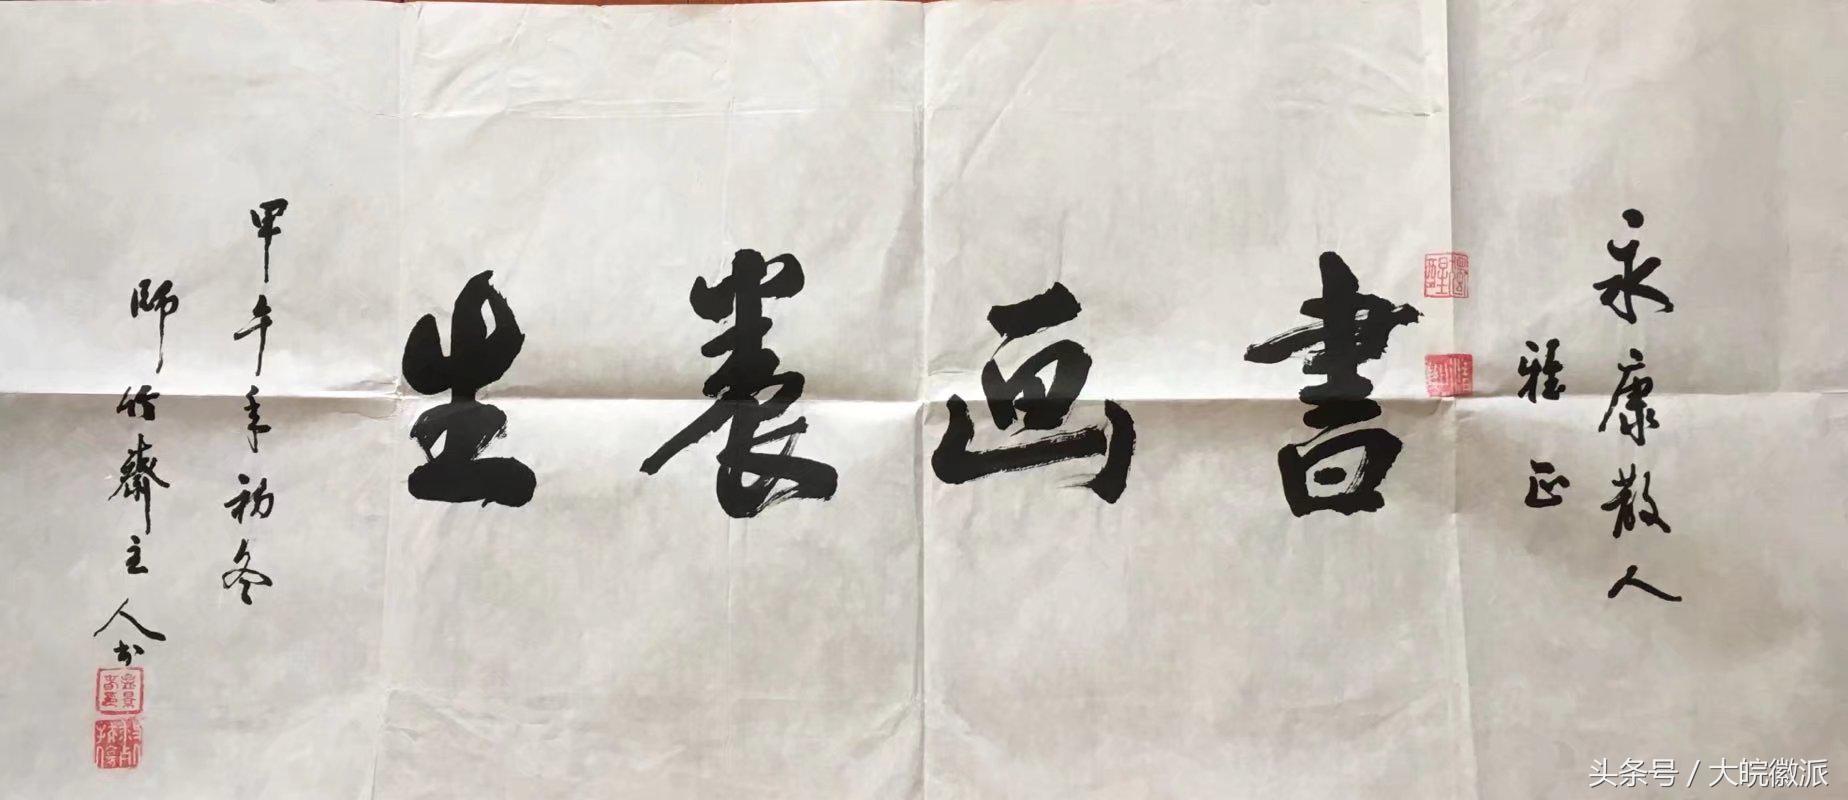 永康散人
雅正
書画養生
甲午年初冬
師竹齋主人书
头条号 / 大皖徽派